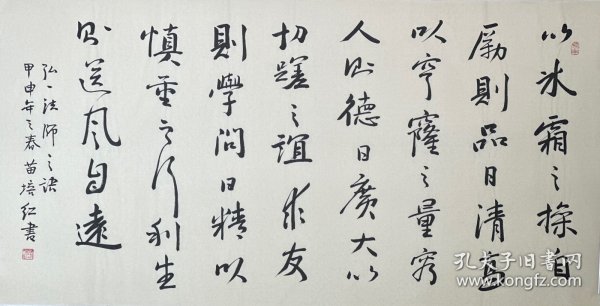 以冰霜之操自
勵則品日清高
以穹窿之量容
人則德日廣大以
切磋之誼求友
則學問日精以
慎重之行利生
則道風自遠
弘一法師之訣
甲申年之春苗培红書
孔夫子旧书网
www.kongfz.com